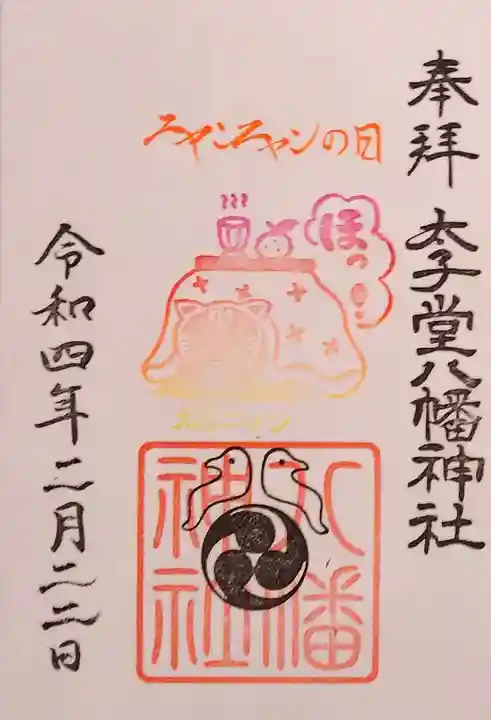 奉拝 太子堂八幡神社
ニャンニャンの日
ほっ
八幡
神社
令和四年二月二二日